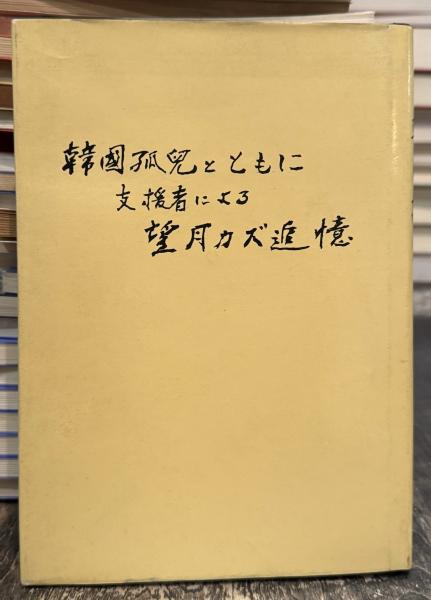 韓國孤児とともに
支援者による
望月カズ追憶